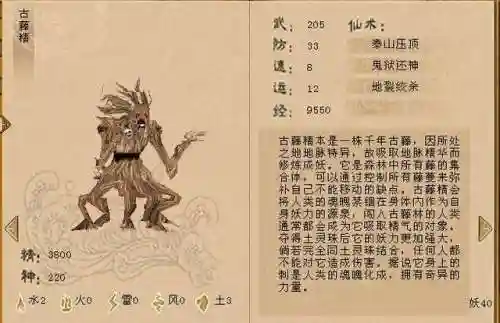 古藤精
武: 205 仙术:
防: 33 泰山压顶
速: 8 鬼狱还神
运: 12 地裂绞杀
经: 9550
古藤精本是一株千年古藤，因所处
之地地脉特异，故吸取地脉精华而
修炼成妖。它是森林中所有藤的集
合体，可以通过控制所有藤蔓来弥
补自己不能移动的缺点。古藤精会
将人类的魂魄禁锢在身体内作为自
身妖力的源泉，闯入古藤林的人类
通常都会成为它吸取精气的对象。
夺得土灵珠后它的妖力更加强大，
倘若完全同土灵珠结合，任何人都
不能对它造成伤害。据说它身上的
刺是人类的魂魄化成，拥有奇异的
力量。
精: 3800
神: 220
水2 火0 雷0 风0 土3
妖40